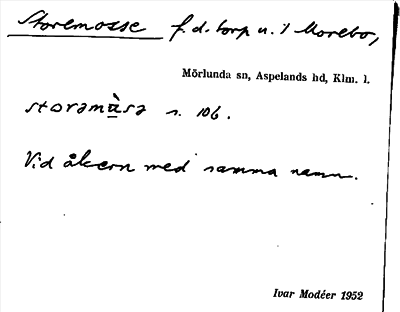 Storemosse f.d. torp u. 1 Morebo,
Mörlunda sn, Aspelands hd, Klm. l.
storamàsa s. 106.
Vid åkern med samma namn.
Ivar Modéer 1952